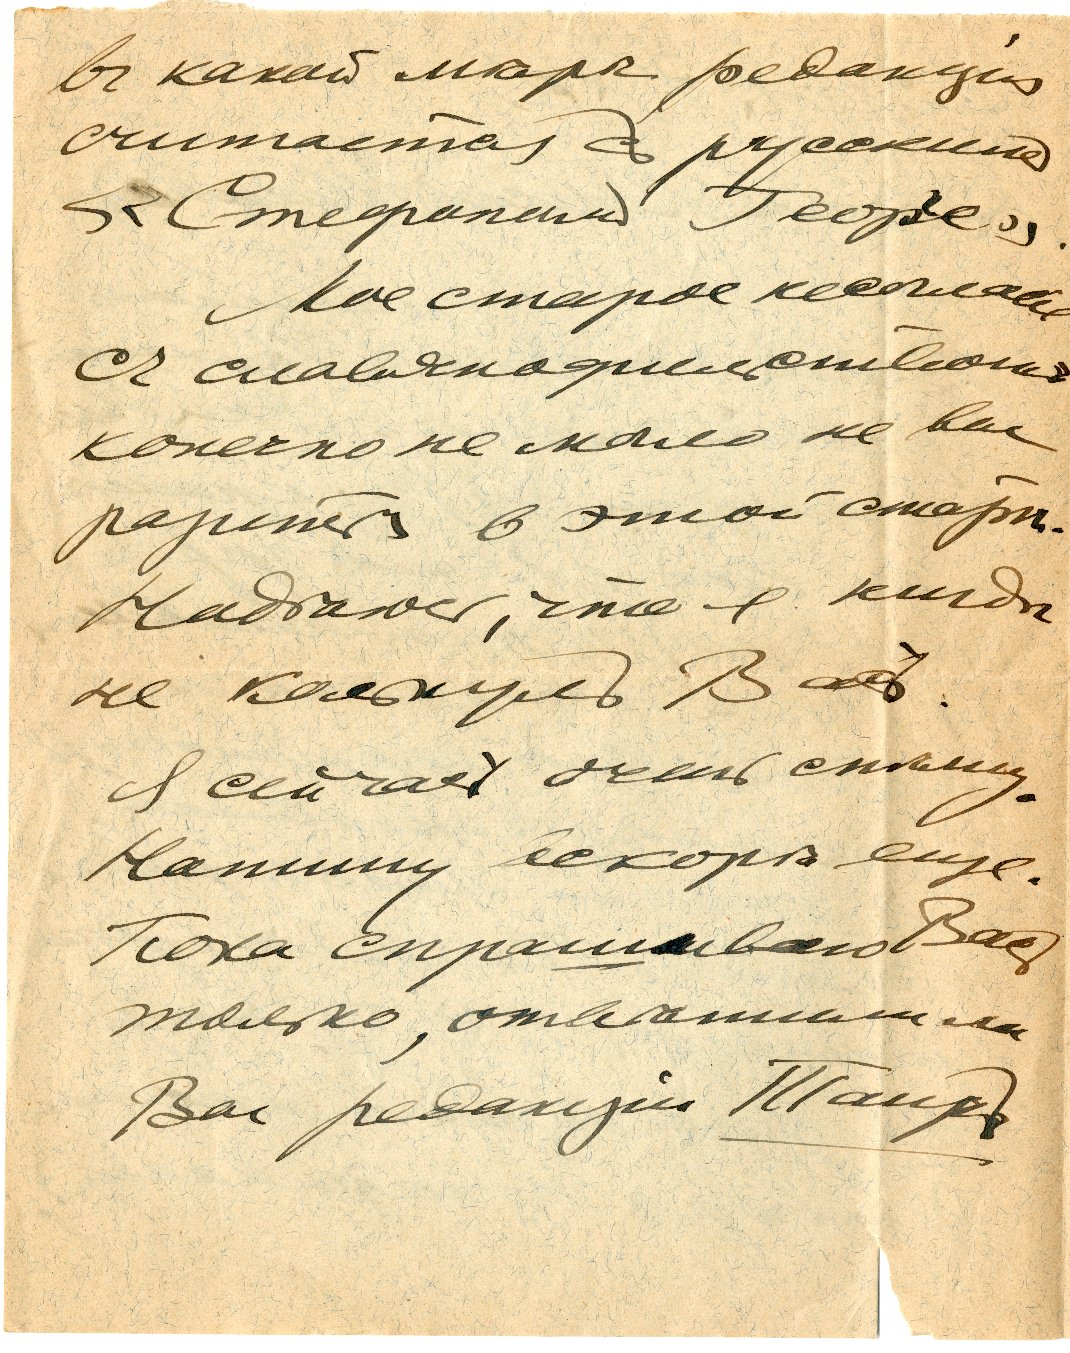 въ какой мѣрѣ редакція
считается съ русскимъ
Стефаномъ Георге.
Мое старое несогласіе
съ славянофильствомъ
конечно не могло не вы
разиться в этой статьѣ.
Надѣюсь, что я нигдѣ
не кольнулъ Васъ.
Я сейчасъ очень спѣшу.
Напишу вскорѣ еще.
Пока спрашиваю Васъ
только, отвѣтили ли
Вы редакціи